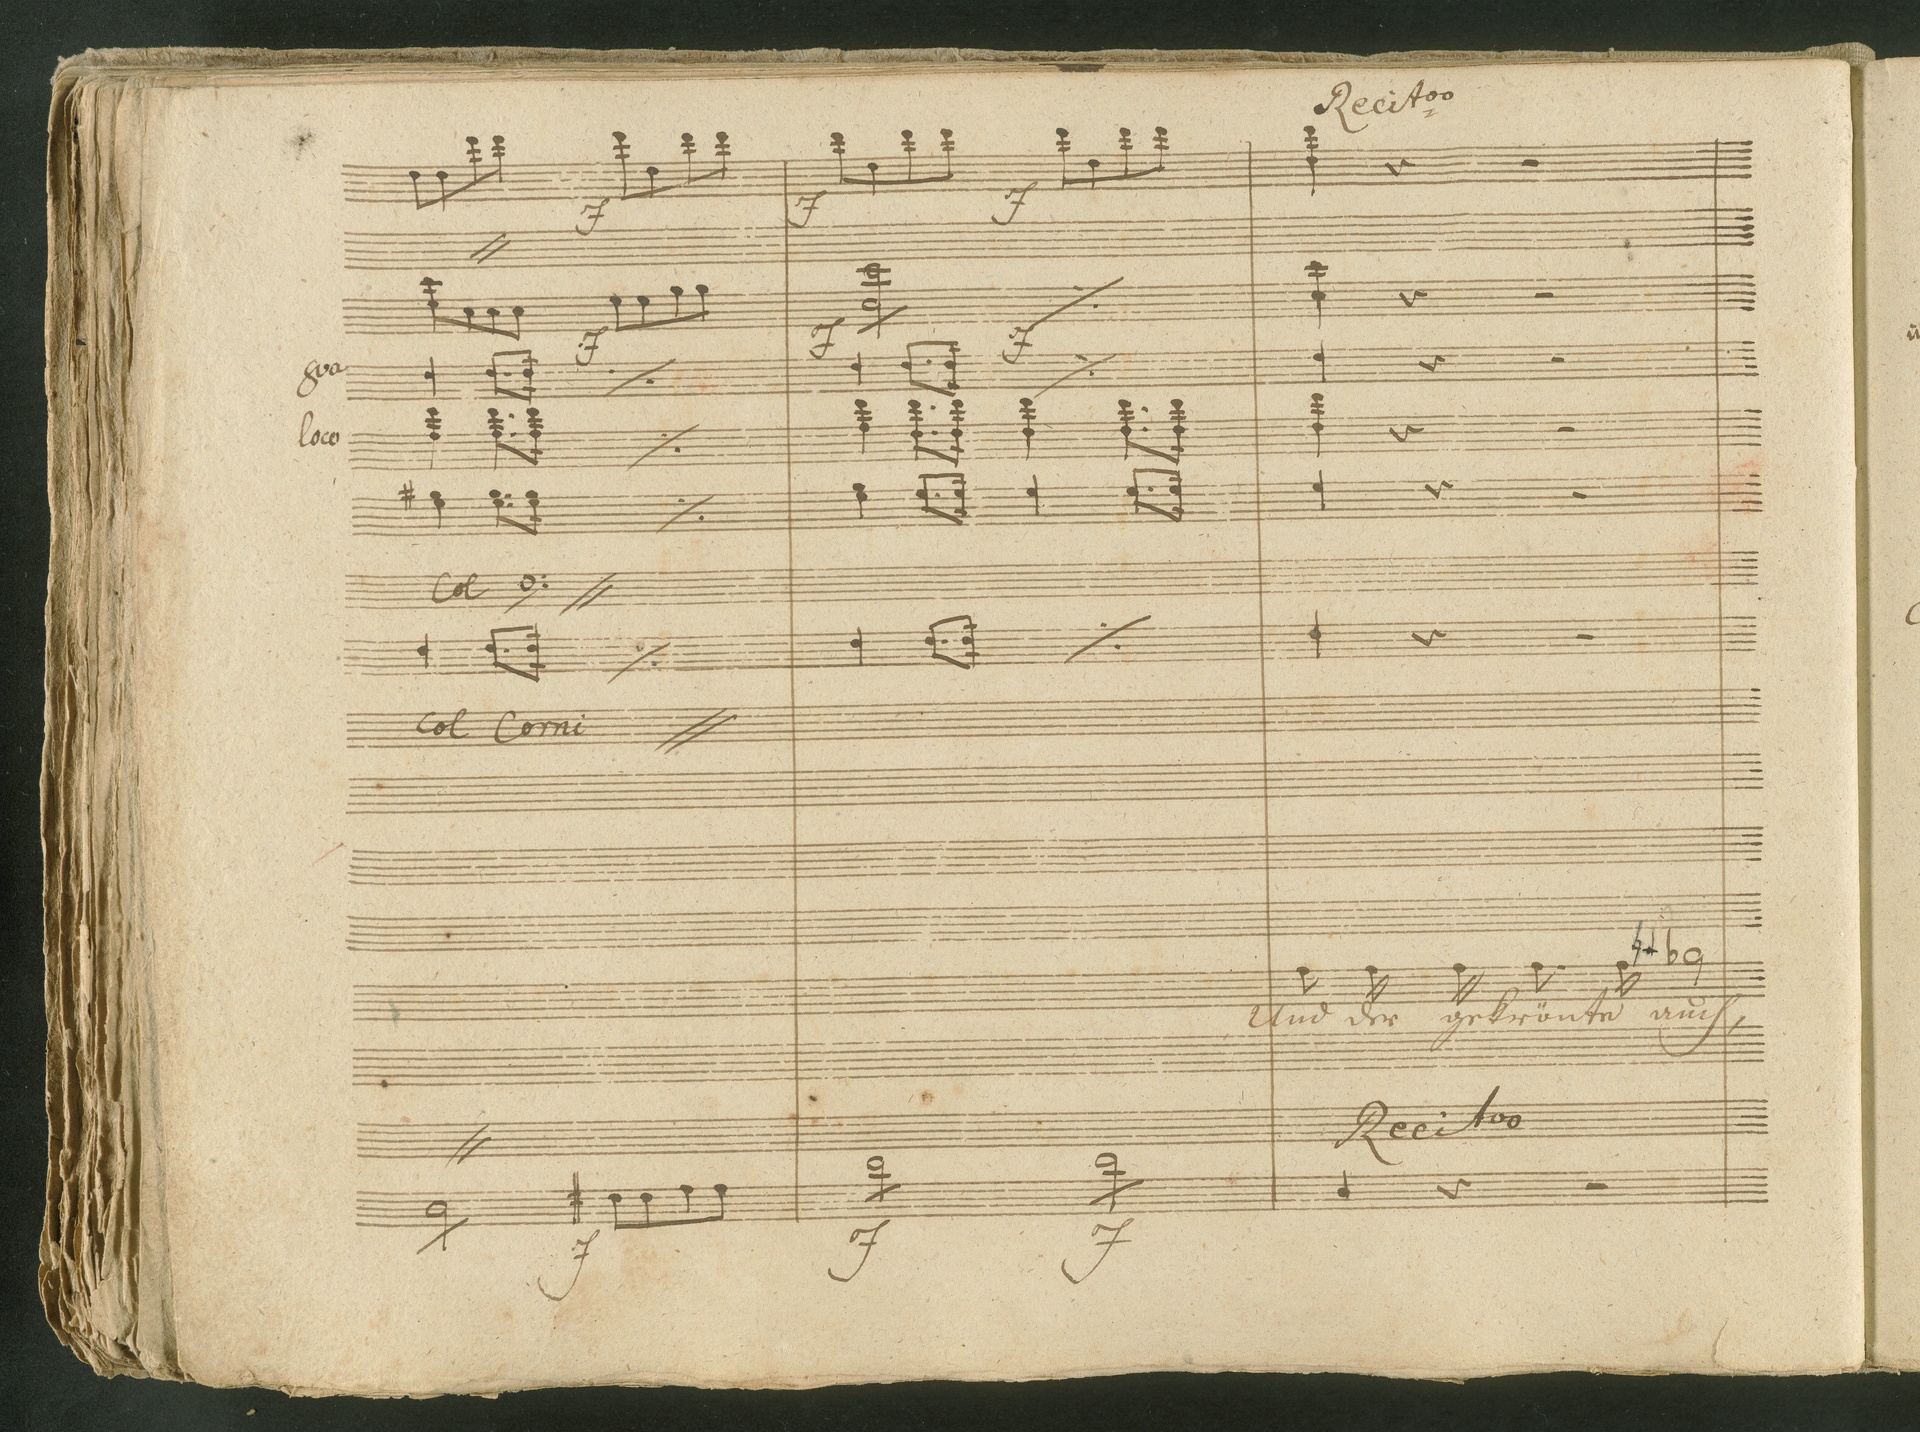 Recitvo
f f f
f f f
8va
loco
Col
Col Corni
Und der gekrönte auch,
Recitvo
f f f